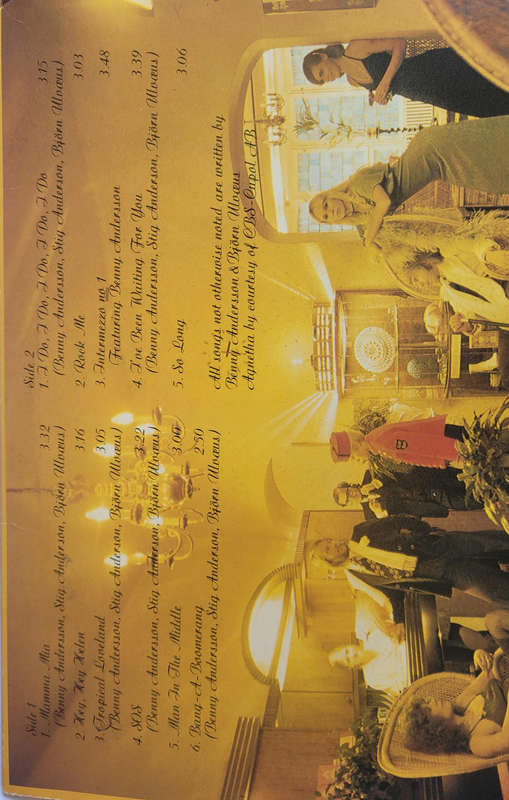 Side 1
1. Mamma Mia 3.32
(Benny Andersson, Stig Anderson, Björn Ulvæus)
2 Hey, Hey Helen 3.16
3. Tropical Loveland 3.05
(Benny Andersson, Stig Anderson, Björn Ulvæus)
4. SOS 3.22
(Benny Andersson, Stig Anderson, Björn Ulvæus)
5. Man In The Middle 3.00
6. Bang-A-Boomerang 2.50
(Benny Andersson, Stig Anderson, Björn Ulvæus)
Side 2
1. I Do, I Do, I Do, I Do, I Do 3.15
(Benny Andersson, Stig Anderson, Björn Ulvæus)
2. Rock Me 3.03
3. Intermezzo no 1 3.48
Featuring Benny Andersson
4. I've Been Waiting For You 3.39
(Benny Andersson, Stig Anderson, Björn Ulvæus)
5. So Long 3.06
All songs not otherwise noted are written by
Benny Andersson & Björn Ulvæus
Agnetha by courtesy of CBS-Cupol AB